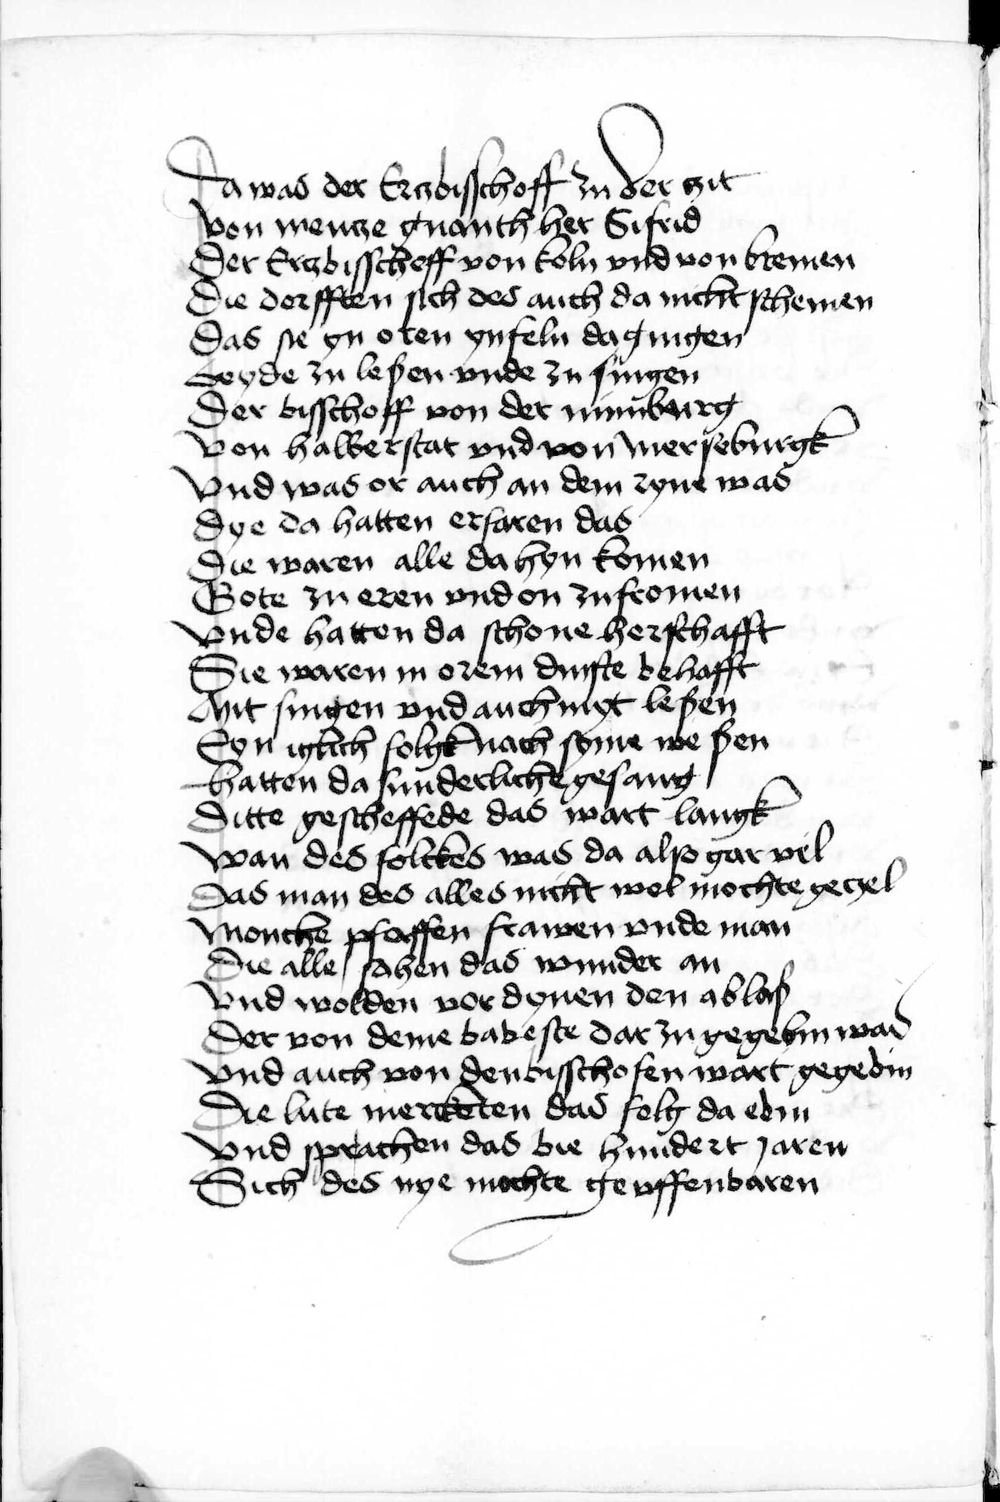 Da was der Erczbisschoff zu der zit
Von mencze gnanth her Sifrid
Der Erczbisschoff von koln vnd von bremen
Die dorfften sich des auch da nicht schemen
Das sie yn oren ynfeln da gingen
Beyde zu leßen vnde zu singen
Der bisschoff von der numburg
Von halberstat vnd von merseburgk
Vnd was or auch an dem ryne was
Dye da hatten erfaren das
Die waren alle da hyn komen
Gote zu eren vnd on zu fromen
Vnde hatten da schone herschafft
Sie waren in orem dinste behafft
Mit singen vnd auch mit leßen
Eyn iglich folgk nach syme weßen
Hatten da sunderliche gesang
Ditte gescheffede das wart langk
Wan des folckes was da also gar vil
Das man des alles nicht wol mochte geczel
Monche pfaffen frawen vnde man
Die alle sahen das wunder an
Vnd wolden vordynen den ablaß
Der von deme babeste dar zu gegebin was
Vnd auch von den bisschofen wart gegebin
Die lute merckten das folg da ebin
Vnd sprachen das bie hundert jaren
Sich des nye mochte geuffenbaren